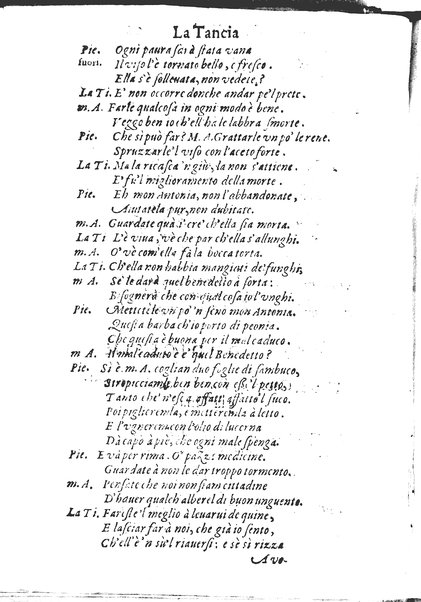 La Tancia
Pie. Ogni paura sarà stata vana
fuori. Il viso l'è tornato bello, e fresco.
Ella s'è sollevata, non vedete?
La Ti. E' non occorre donche andar pe'l prete.
m. A. Farle qualcosa in ogni modo è bene.
Veggo ben io ch'ell ha le labbra smorte.
Pie. Che si può far? M. A. Grattarle un po' le rene.
Spruzzarle'l viso con l'aceto forte.
La Ti. Ma la ricasca'n giù, la non s'attiene.
E' fu'l miglioramento della morte.
Pie. Eh mon Antonia, non l'abbandonate,
Aiutatela pur, non dubitate.
m. A. Guardate quà s'e' cre' ch'ella sia morta.
La Ti L'è viva, v'è che par ch'ella s'allunghi.
m. A. O' v'è com'ella fà la bocca torta.
La Ti. Ch'ella non habbia mangiati de' funghi,
m A. Se le darà quel benedetto à sorta:
Bisognerà che con qualcosa io l'unghi.
Pie. Mettetele un po' 'n seno mon Antonia.
Questa barba ch'io porto di peonia.
Che questa è buona per il mal caduco.
m A. Il mal caduco è è quel Benedetto?
Pie. Sì è. m. A. coglian duo foglie di sambuco,
Stropicciamle ben ben con esse'l petto,
Tanto che n'esca affatt, affatto'l suco.
Poi piglieremla, e metteremla à letto.
E l'ugneremo con l'olio di lucerna
Da capo à piè, che ogni male spenga.
Pie. E và per rima. O' pazze medicine.
Guardate à non le dar troppo tormento.
m. A. Pensate che noi non siam cittadine
D'haver qualch alberel di buon unguento.
La Ti. Fareste'l meglio à levarvi de quine,
E lasciar far à noi, che già io sento,
Ch'ell'è'n su'l riaversi: e sè si rizza
Avo-